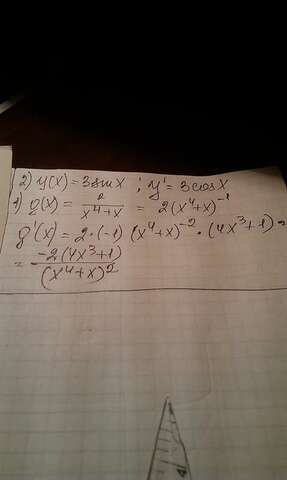 2) y(x) = 3sinx ; y' = 3cosx
1) g(x) = 2/(x⁴+x) = 2(x⁴+x)⁻¹
g'(x) = 2·(-1)(x⁴+x)⁻²·(4x³+1) =
= -2(4x³+1)/(x⁴+x)²